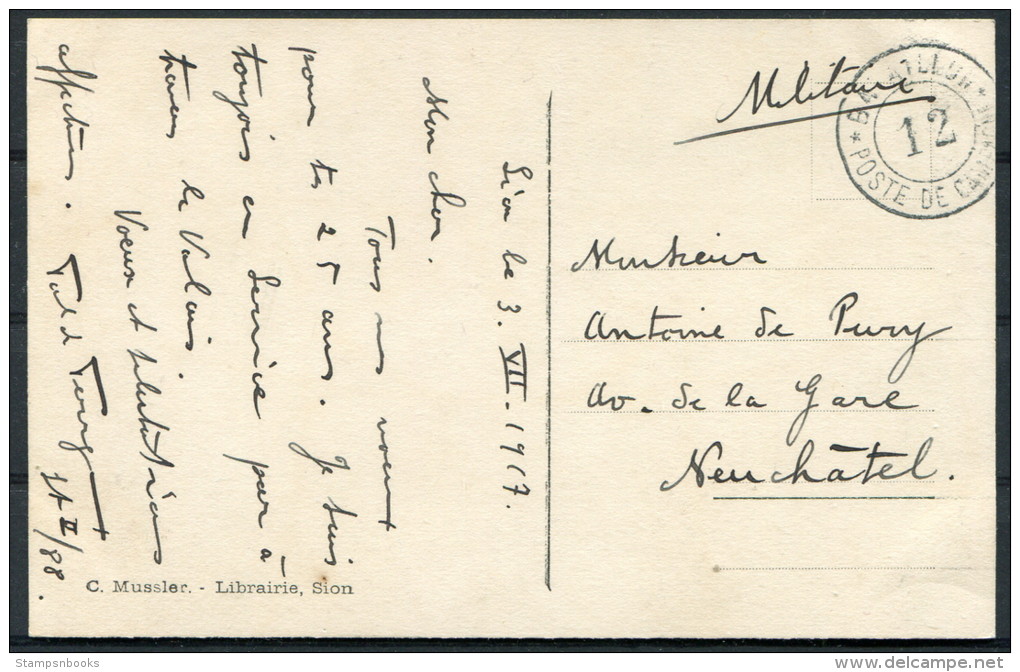 Militaire
BATAILLON
12
POSTE DE CAMPAGNE
Monsieur
Antoine de Pury
Av. de la Gare
Neuchâtel.
Sion le 3. VII. 1917.
Mon cher.
Tous mes voeux
pour tes 25 ans. Je suis
toujours en service par à
travers le Valais.
Voeux et salutations
II/88.
C. Mussler. - Librairie, Sion
Stampsnbooks
delcampe.net